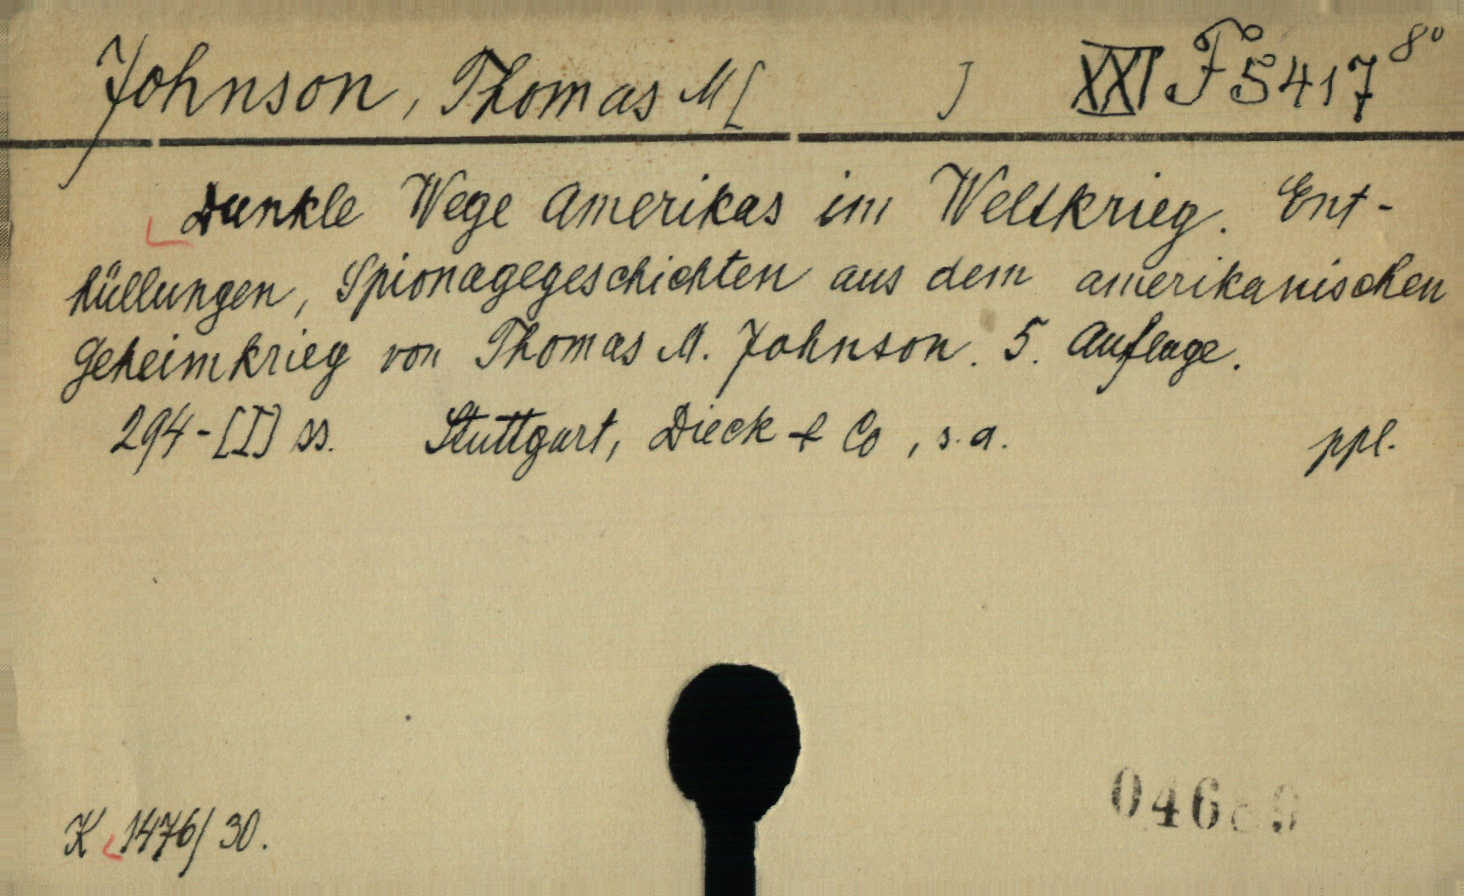 Johnson, Thomas M[ ] XXI F 5417 8º
Dunkle Wege Amerikas im Weltkrieg. Ent-
hüllungen, Spionagegeschichten aus dem amerikanischen
Geheimkrieg von Thomas M. Johnson. 5. Auflage.
294-[I] ss. Stuttgart, Dieck & Co, s.a. ppl.
K 1476/30.